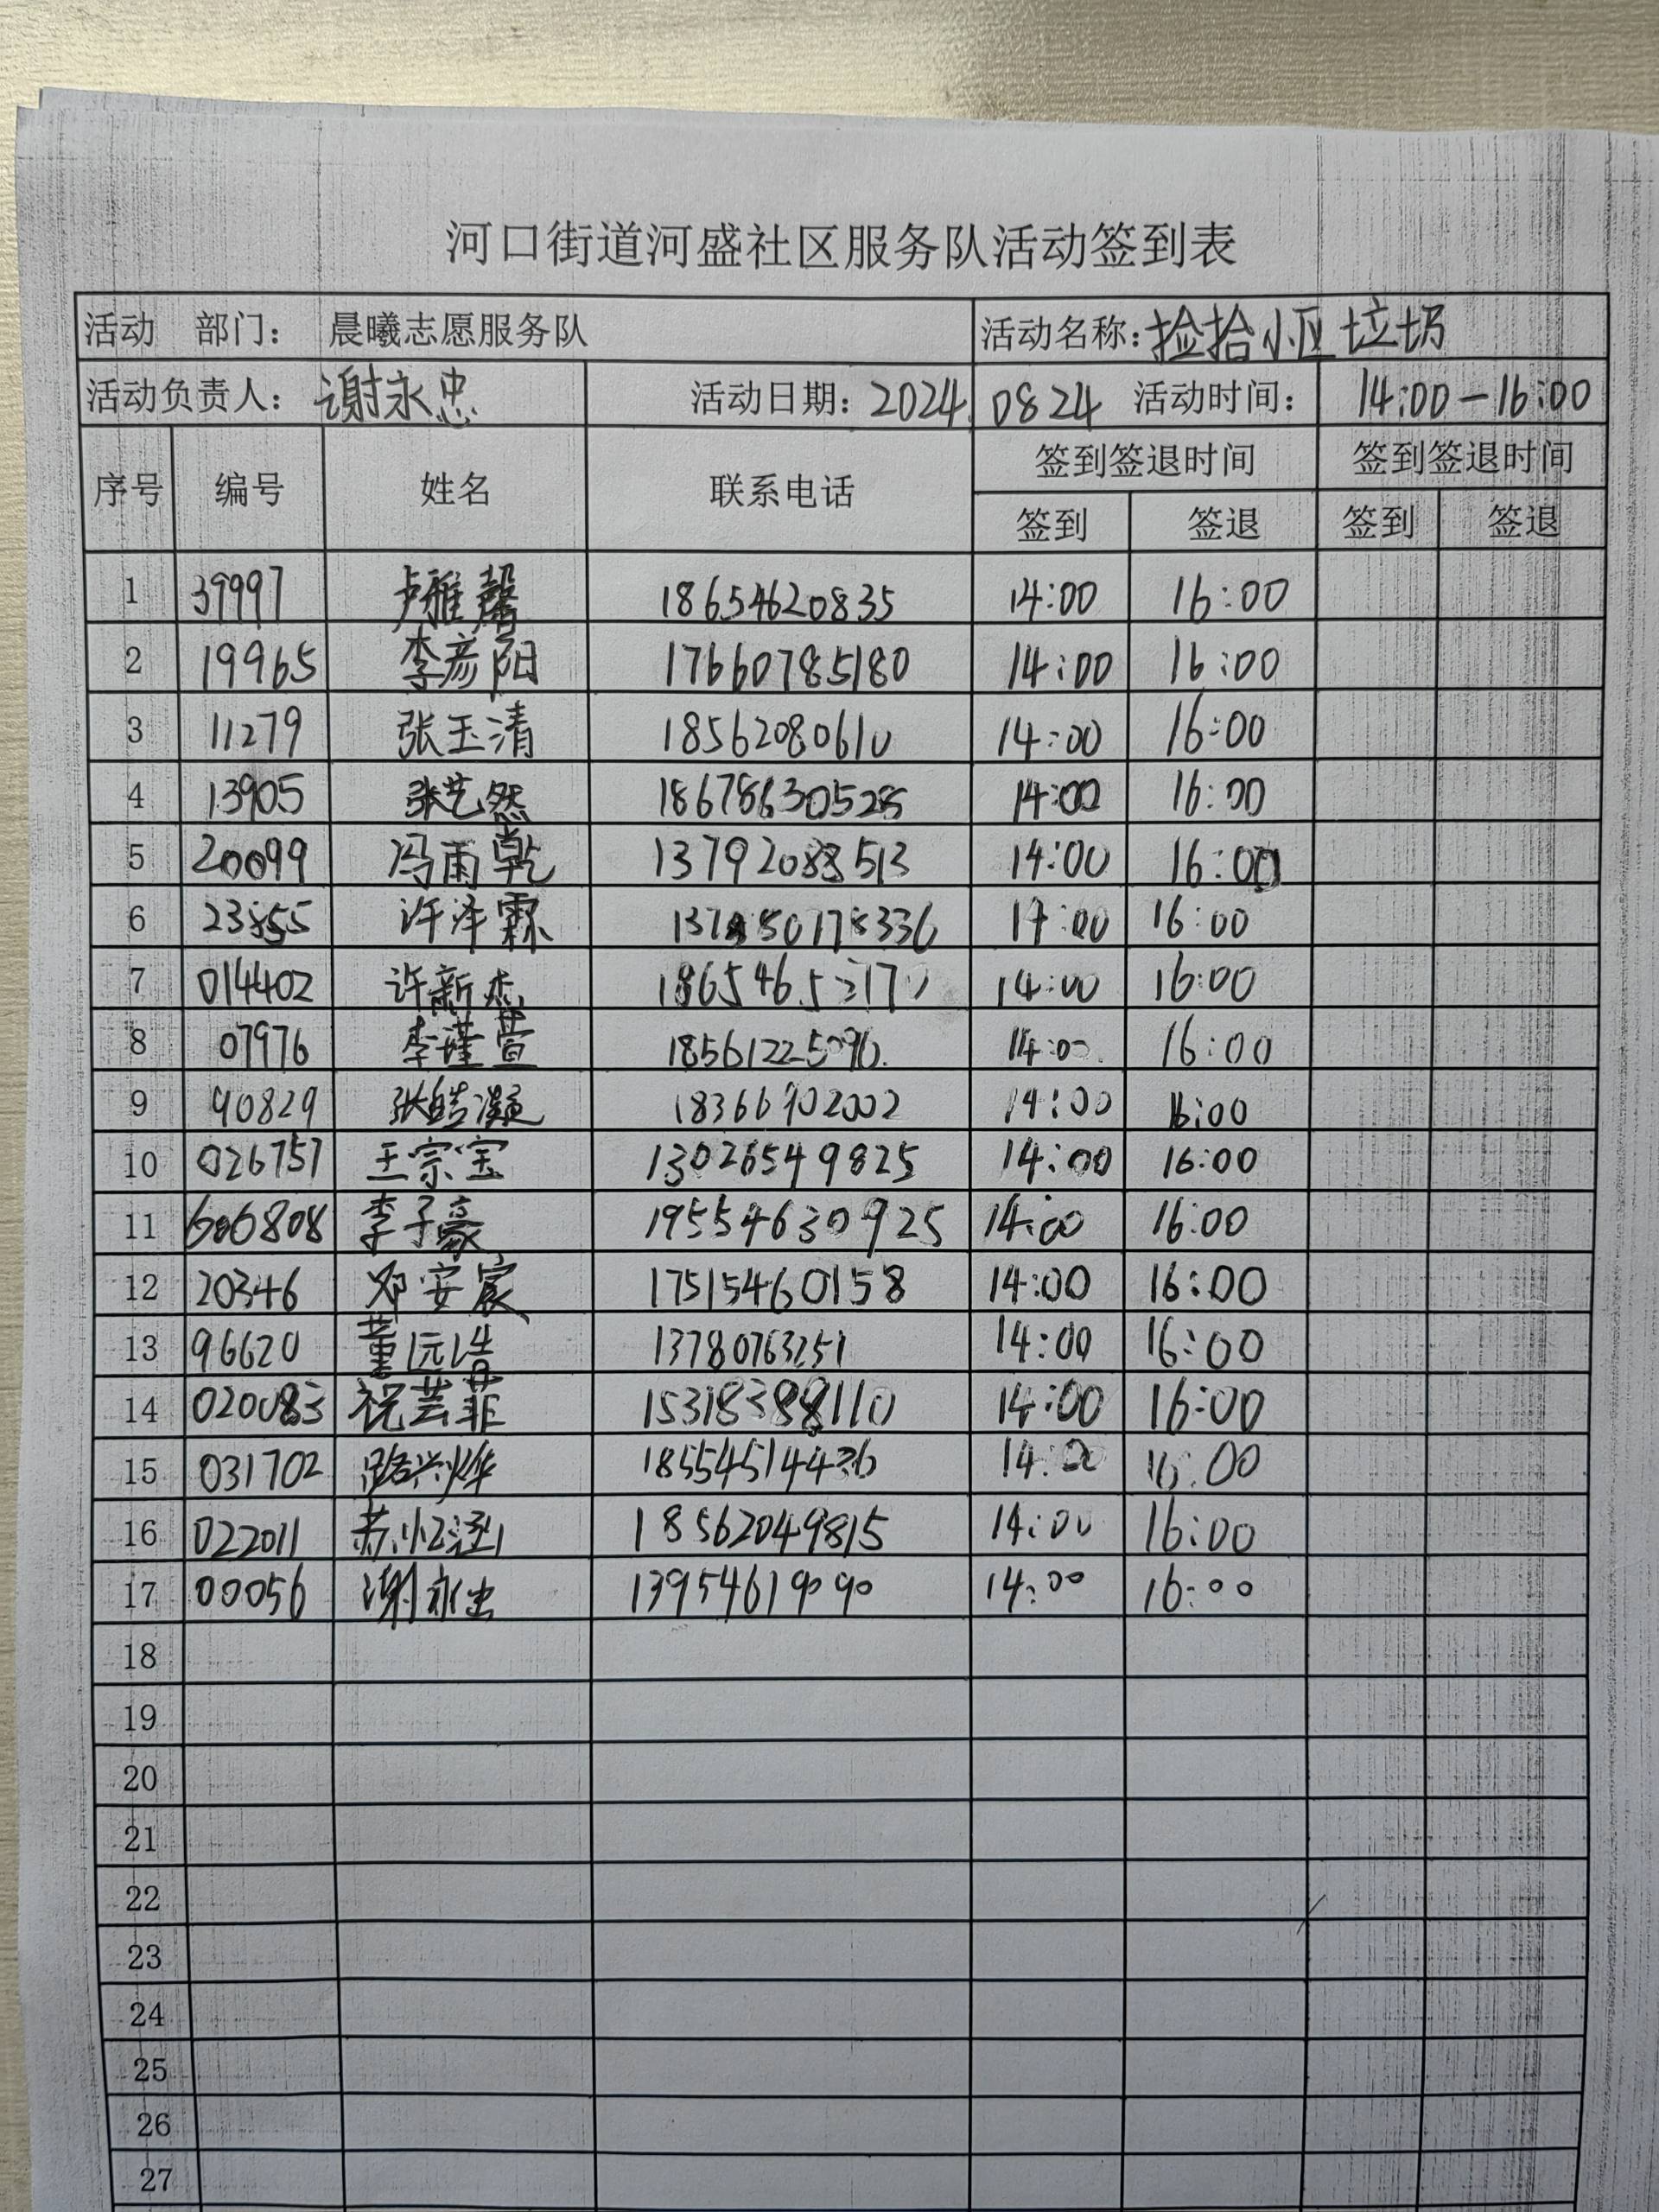 河口街道河盛社区服务队活动签到表
活动 部门： 晨曦志愿服务队 活动名称：捡拾小区垃圾
活动负责人：谢永忠 活动日期：2024.0824 活动时间：14:00-16:00
序号 编号 姓名 联系电话 签到签退时间 签到签退时间
签到 签退 签到 签退
1 39997 卢雅馨 18654620835 14:00 16:00
2 19965 李彦阳 17660785180 14:00 16:00
3 11279 张玉清 18562080610 14:00 16:00
4 13905 张艺然 14:00 16:00
5 20099 冯雨乾 13792088513 14:00 16:00
6 23855 许泽霖 14:00 16:00
7 014402 许新杰 14:00 16:00
8 07976 李瑾萱 18561225096 14:00 16:00
9 90829 张皓灏 18366902002 14:00 16:00
10 026757 王宗宝 13026549825 14:00 16:00
11 606808 李子豪 19554630925 14:00 16:00
12 20346 邓安宸 17515460158 14:00 16:00
13 96620 董沅浩 13780763251 14:00 16:00
14 020083 祝芸菲 15318388110 14:00 16:00
15 031702 路兴烨 18554514436 14:00 16:00
16 022011 苏忆 18562049815 14:00 16:00
17 00056 谢永忠 13954619090 14:00 16:00
18
19
20
21
22
23
24
25
26
27